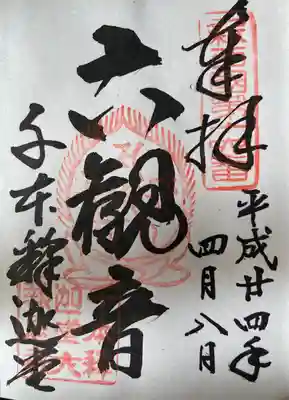 奉拝
平成廿四年
四月八日
六観音
千本釈迦堂